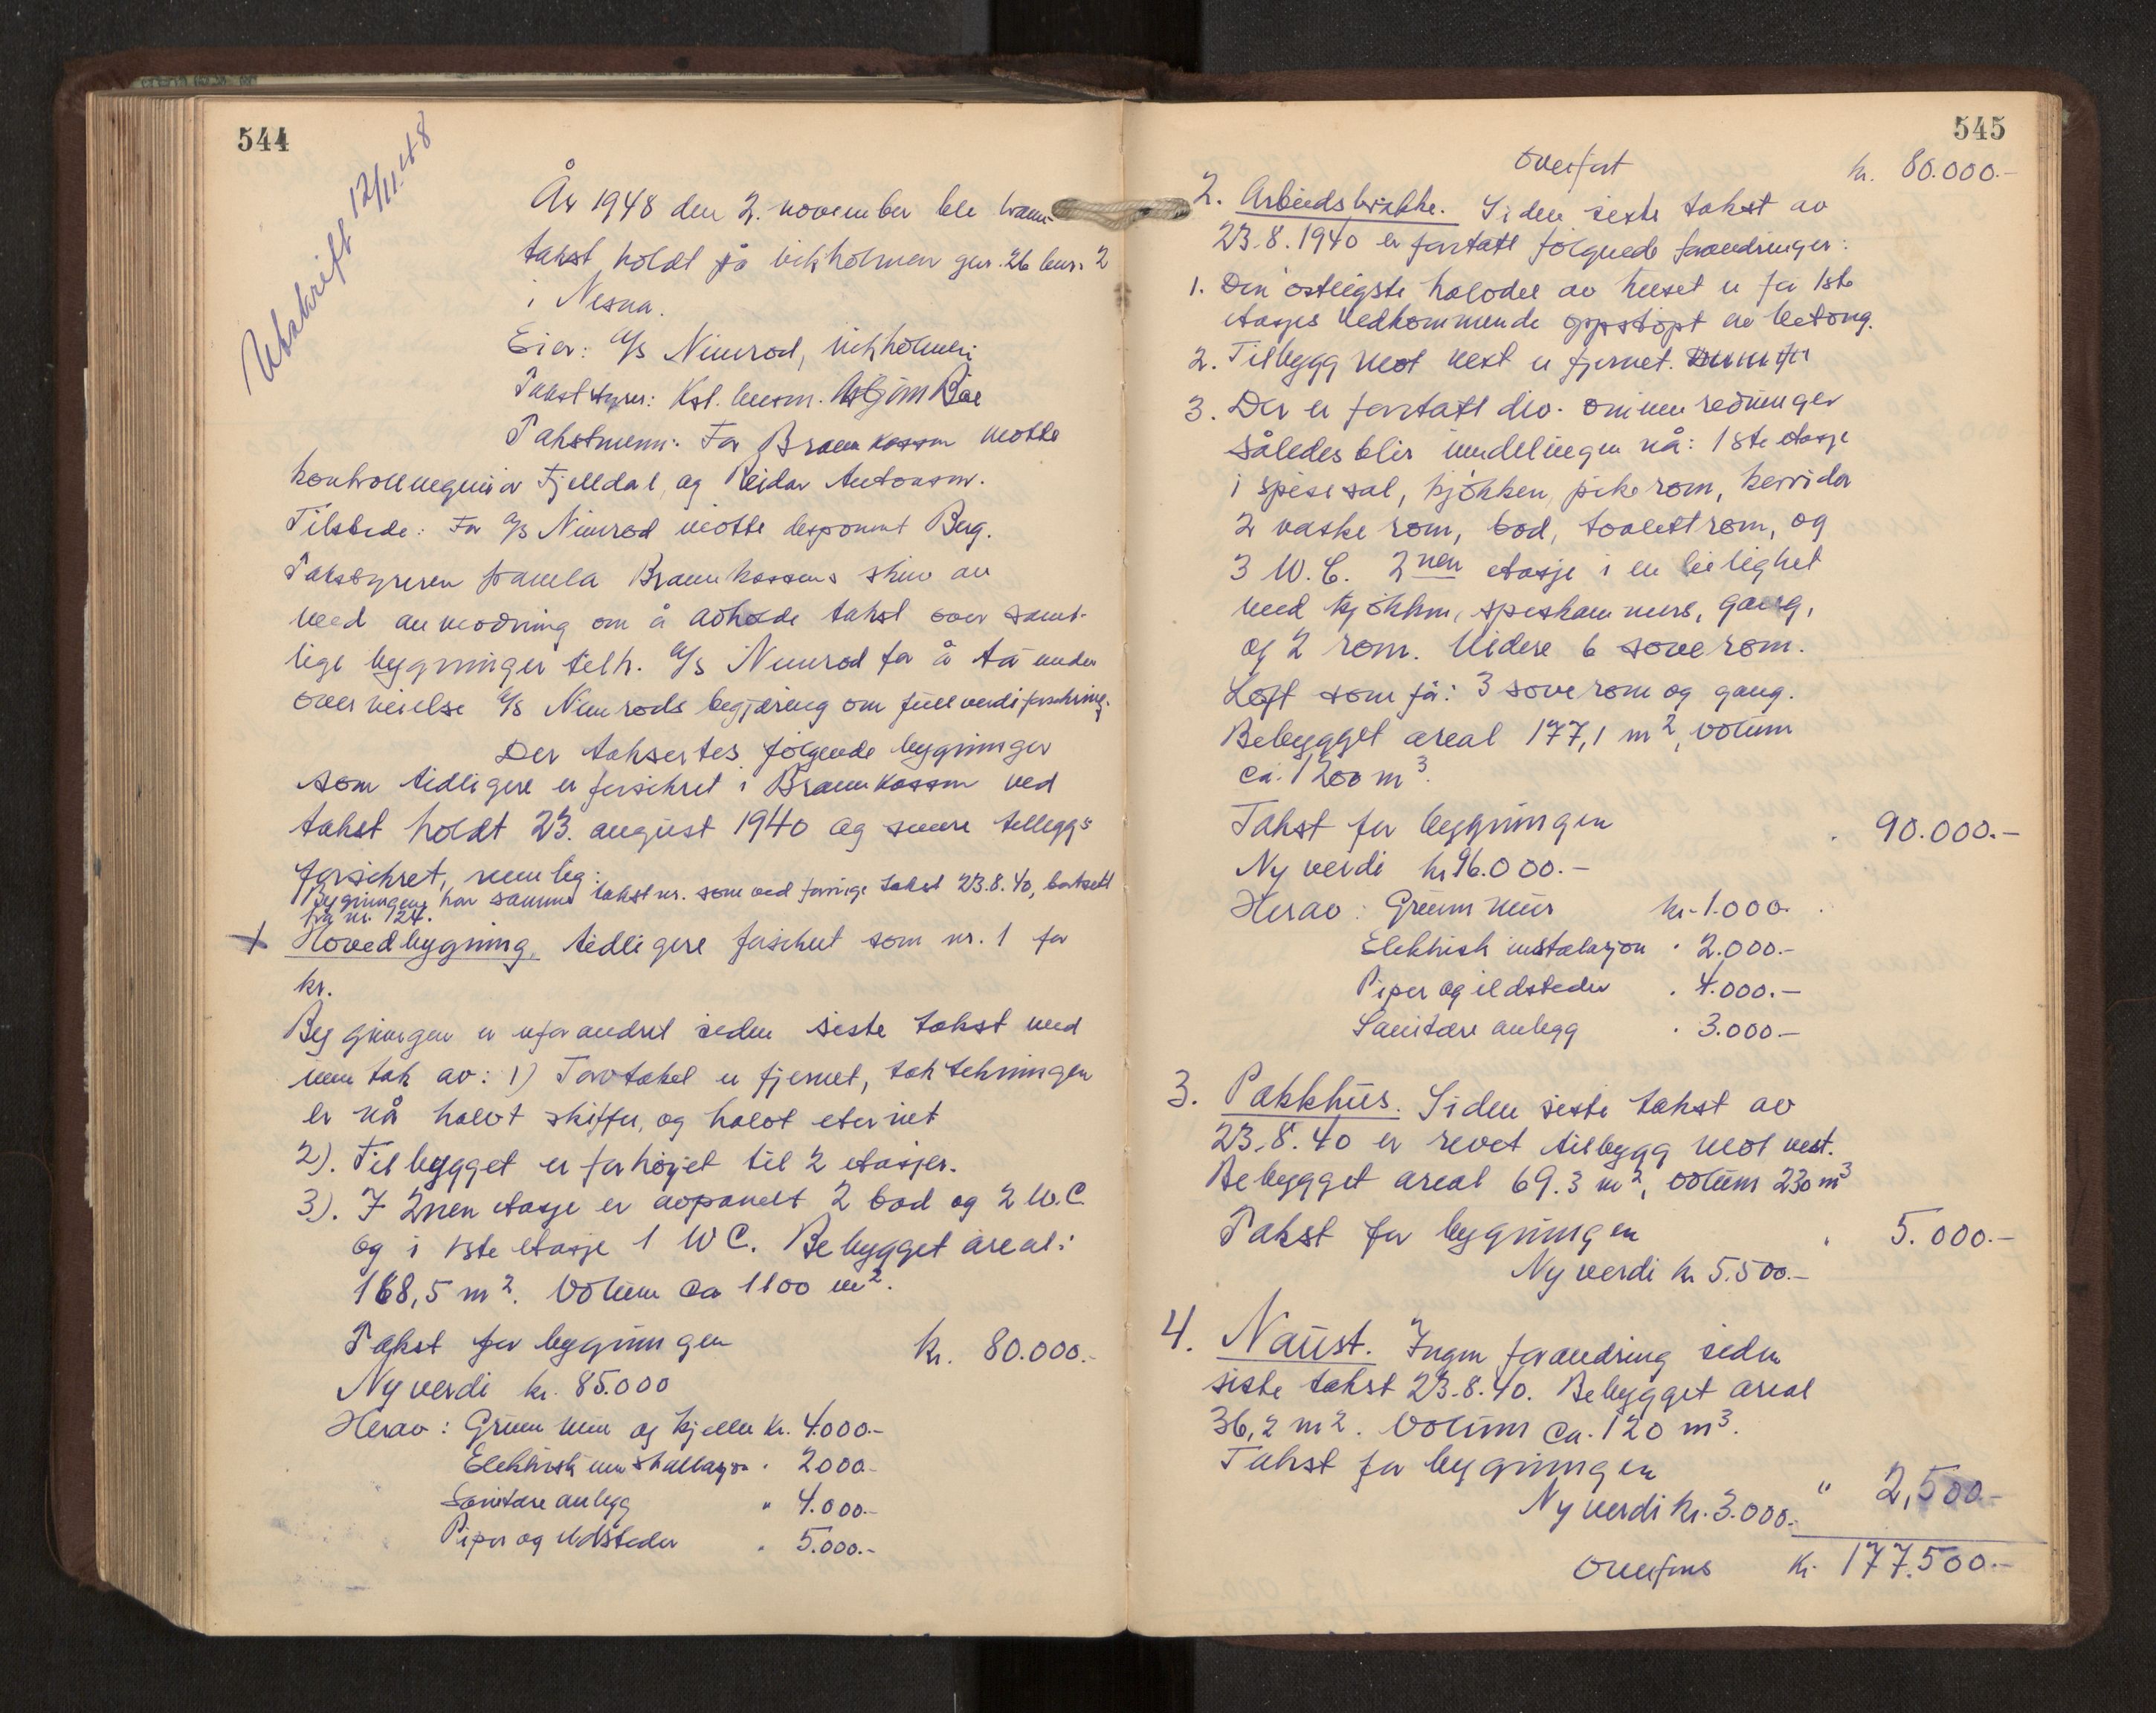 544
Utskrift 12/11.48
År 1948 den 2. november ble brann-
takst holdt på Vikholmen gnr. 26 bnr. 2
i Nesna.
Eier: A/S Nimrod, Vikholmen
Takststyrer: Kst. lensm. Asbjørn Bæ
Takstmenn: For Brannkassen møtte
kontrollingeniør Fjelldal, og Reidar Antonsen.
Tilstede: For A/S Nimrod møtte disponent Berg.
Takststyreren framla Brannkassens skriv av
med anmodning om å avholde takst over samt-
lige bygninger tilh. A/S Nimrod for å ta under
overveielse A/S Nimrods begjæring om fullverdiforsikring.
Der taksertes følgende bygninger
som tidligere er forsikret i Brannkassen ved
takst holdt 23. august 1940 og senere tilleggs
forsikret, nemleg:
Bygningene har samme takstnr. som ved forrige takst 23.8.40, bortsett
fra nr. 124.
1 Hovedbygning, tidligere forsikret som nr. 1 for
kr.
Bygningen er uforandret siden siste takst med
unntak av: 1) Torvtaket er fjernet, taktekningen
er nå halvt skiffer, og halvt eternit
2). Tilbygget er forhøyet til 2 etasjer.
3). I 2nen etasje er avpanelt 2 bod og 2 W.C
og i 1ste etasje 1 WC. Bebygget areal:
168,5 m². Volum ca 1100 m².
Takst for bygningen kr. 80.000.-
Ny verdi kr. 85.000
Herav: Grunnmur og kjeller kr. 4.000.-
Elektrisk innstallasjon " 2000.-
Sanitære anlegg " 4.000.-
Piper og ildsteder " 5.000.-
545
Overført kr. 80.000.-
2. Arbeidsbrakke. Siden siste takst av
23.8.1940 er foretatt følgende forandringer:
1. Den østligste halvdel av huset er for 1ste
etasjes vedkommende oppstøpt av betong.
2. Tilbygg mot vest er fjernet.
3. Der er foretatt div. ominnredninger
således blir inndelingen nå: 1ste etasje
i spisesal, kjøkken, pikerom, korridor
2 vaskerom, bod, toalettrom, og
3 W.C. 2nen etasje i en leilighet
med kjøkken, spiskammers, gang,
og 2 rom. Videre 6 soverom.
Loft som før: 3 soverom og gang.
Bebygget areal 177,1 m², volum
ca. 1200 m³.
Takst for bygningen " 90.000.-
Ny verdi kr 96.000.-
Herav: Grunnmur kr. 1.000.
Elektrisk installasjon " 2.000.-
Piper og ildsteder " 4.000.-
Sanitære anlegg " 3.000.-
3. Pakkhus. Siden siste takst av
23.8.40 er revet tilbygg mot vest.
Bebygget areal 69.3 m², volum 230 m³
Takst for bygningen " 5.000.-
Ny verdi kr 5.500.-
4. Naust. Ingen forandring siden
siste takst 23.8.40. Bebygget areal
36,2 m². Volum ca. 120 m³.
Takst for bygningen " 2,500.-
Ny verdi kr. 3.000.-
Overføres kr. 177.500.-